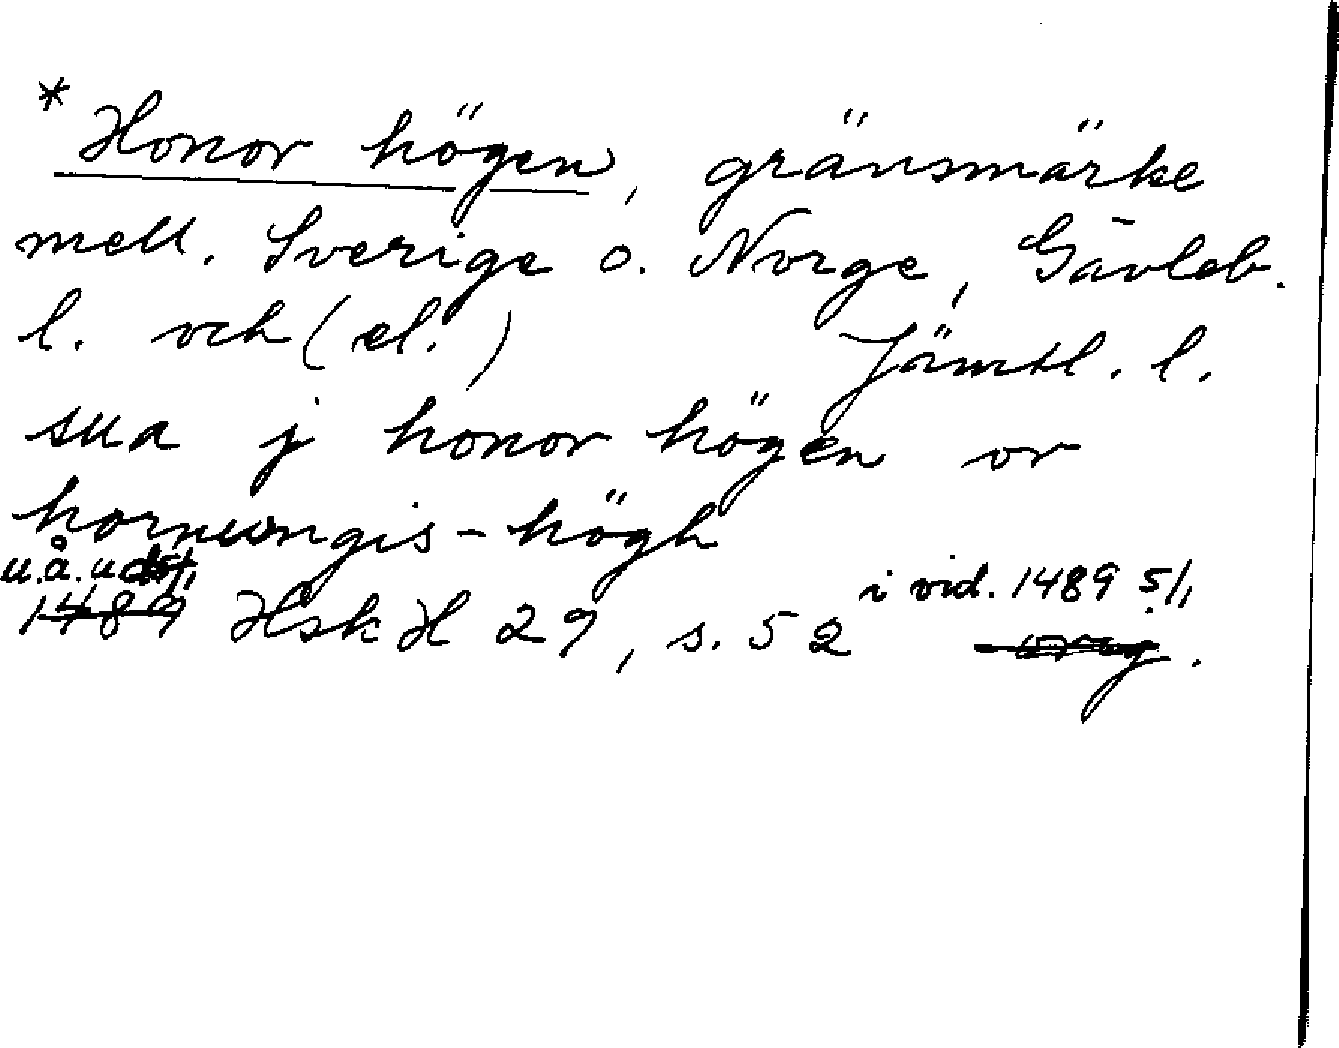 * Honor högen, gränsmärke
mell. Sverige o. Norge, Gävleb.
l. och (el. ) Jämtl. l.
sua j honor högen or
hornungis-högh
u.å. u.d.
1489 Hsk H 29, s. 52 i vid. 1489 5/1
orig.